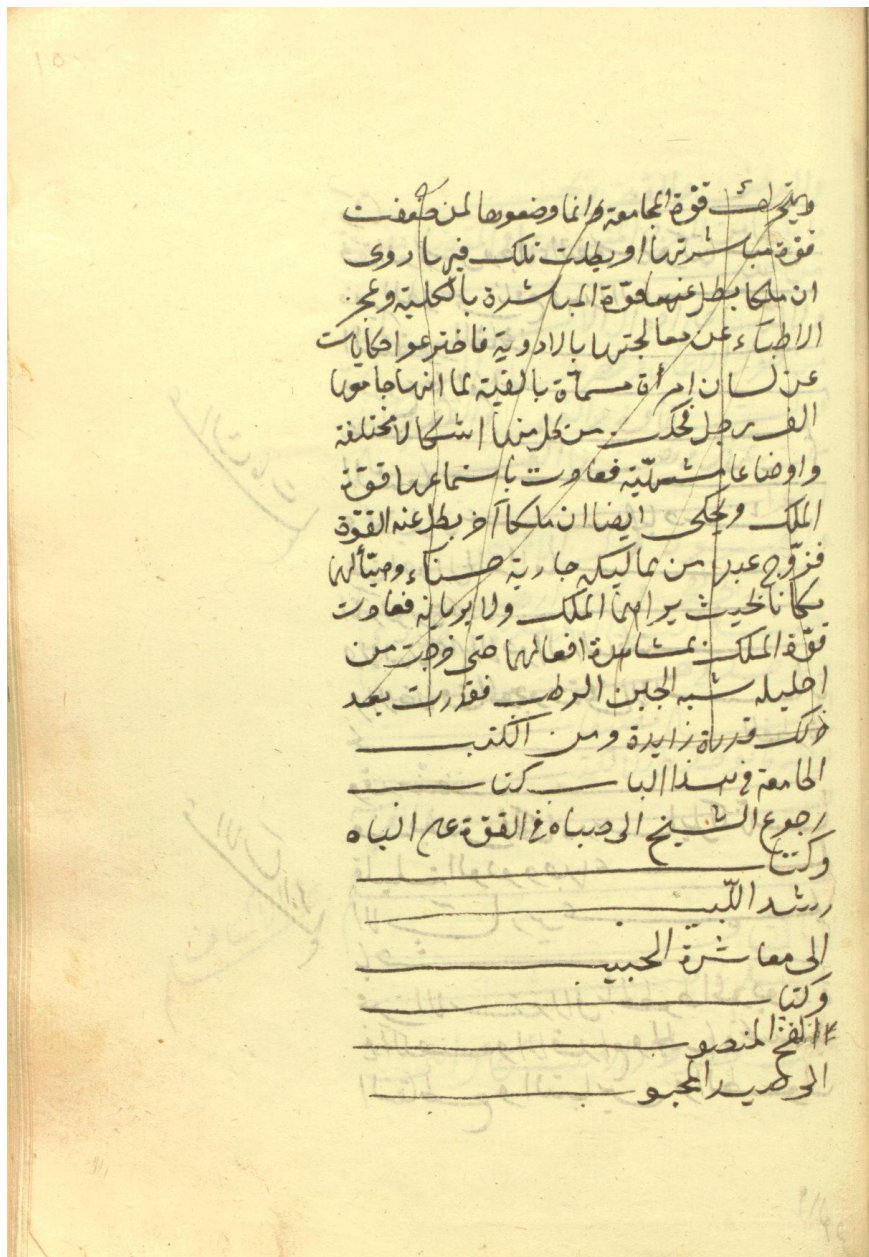 ويتحرك قوة المجامعة وانما وضعوها لمن ضعفت
قوة مباشرتها او بطلت تلك فيها روى
ان ملكا بطل عنها قوة المباشرة بالكلية وعجز
الاطباء عن معالجتها بالادوية فاخترعوا حكايات
عن لسان امرأة مسماة بالفية لما انها جامعها
الف رجل فحكت من كل منها اشكالا مختلفة
واوضاعا مشهية فعادت باستماعها قوة
الملك ويحكى ايضا ان ملكا آخر بطل عنه القوة
فزوّج عبدا من مماليكه جارية حسناء وهيّأ لهما
مكانا بحيث يراهما الملك ولا يريانه فعادت
قوّة الملك بمشاهدة افعالهما حتى خرجت من
احليله شبه الجبن الرطب فقدرت بعد
ذلك قدرة زايدة ومن الكتب
الجامعة فى هذا الباب كتاب
رجوع الشيخ الى صباه فى القوة على الباه
وكتاب
رشد اللبيب
الى معاشرة الحبيب
وكتاب
الفتح المنصوب
الى صيد المحبوب